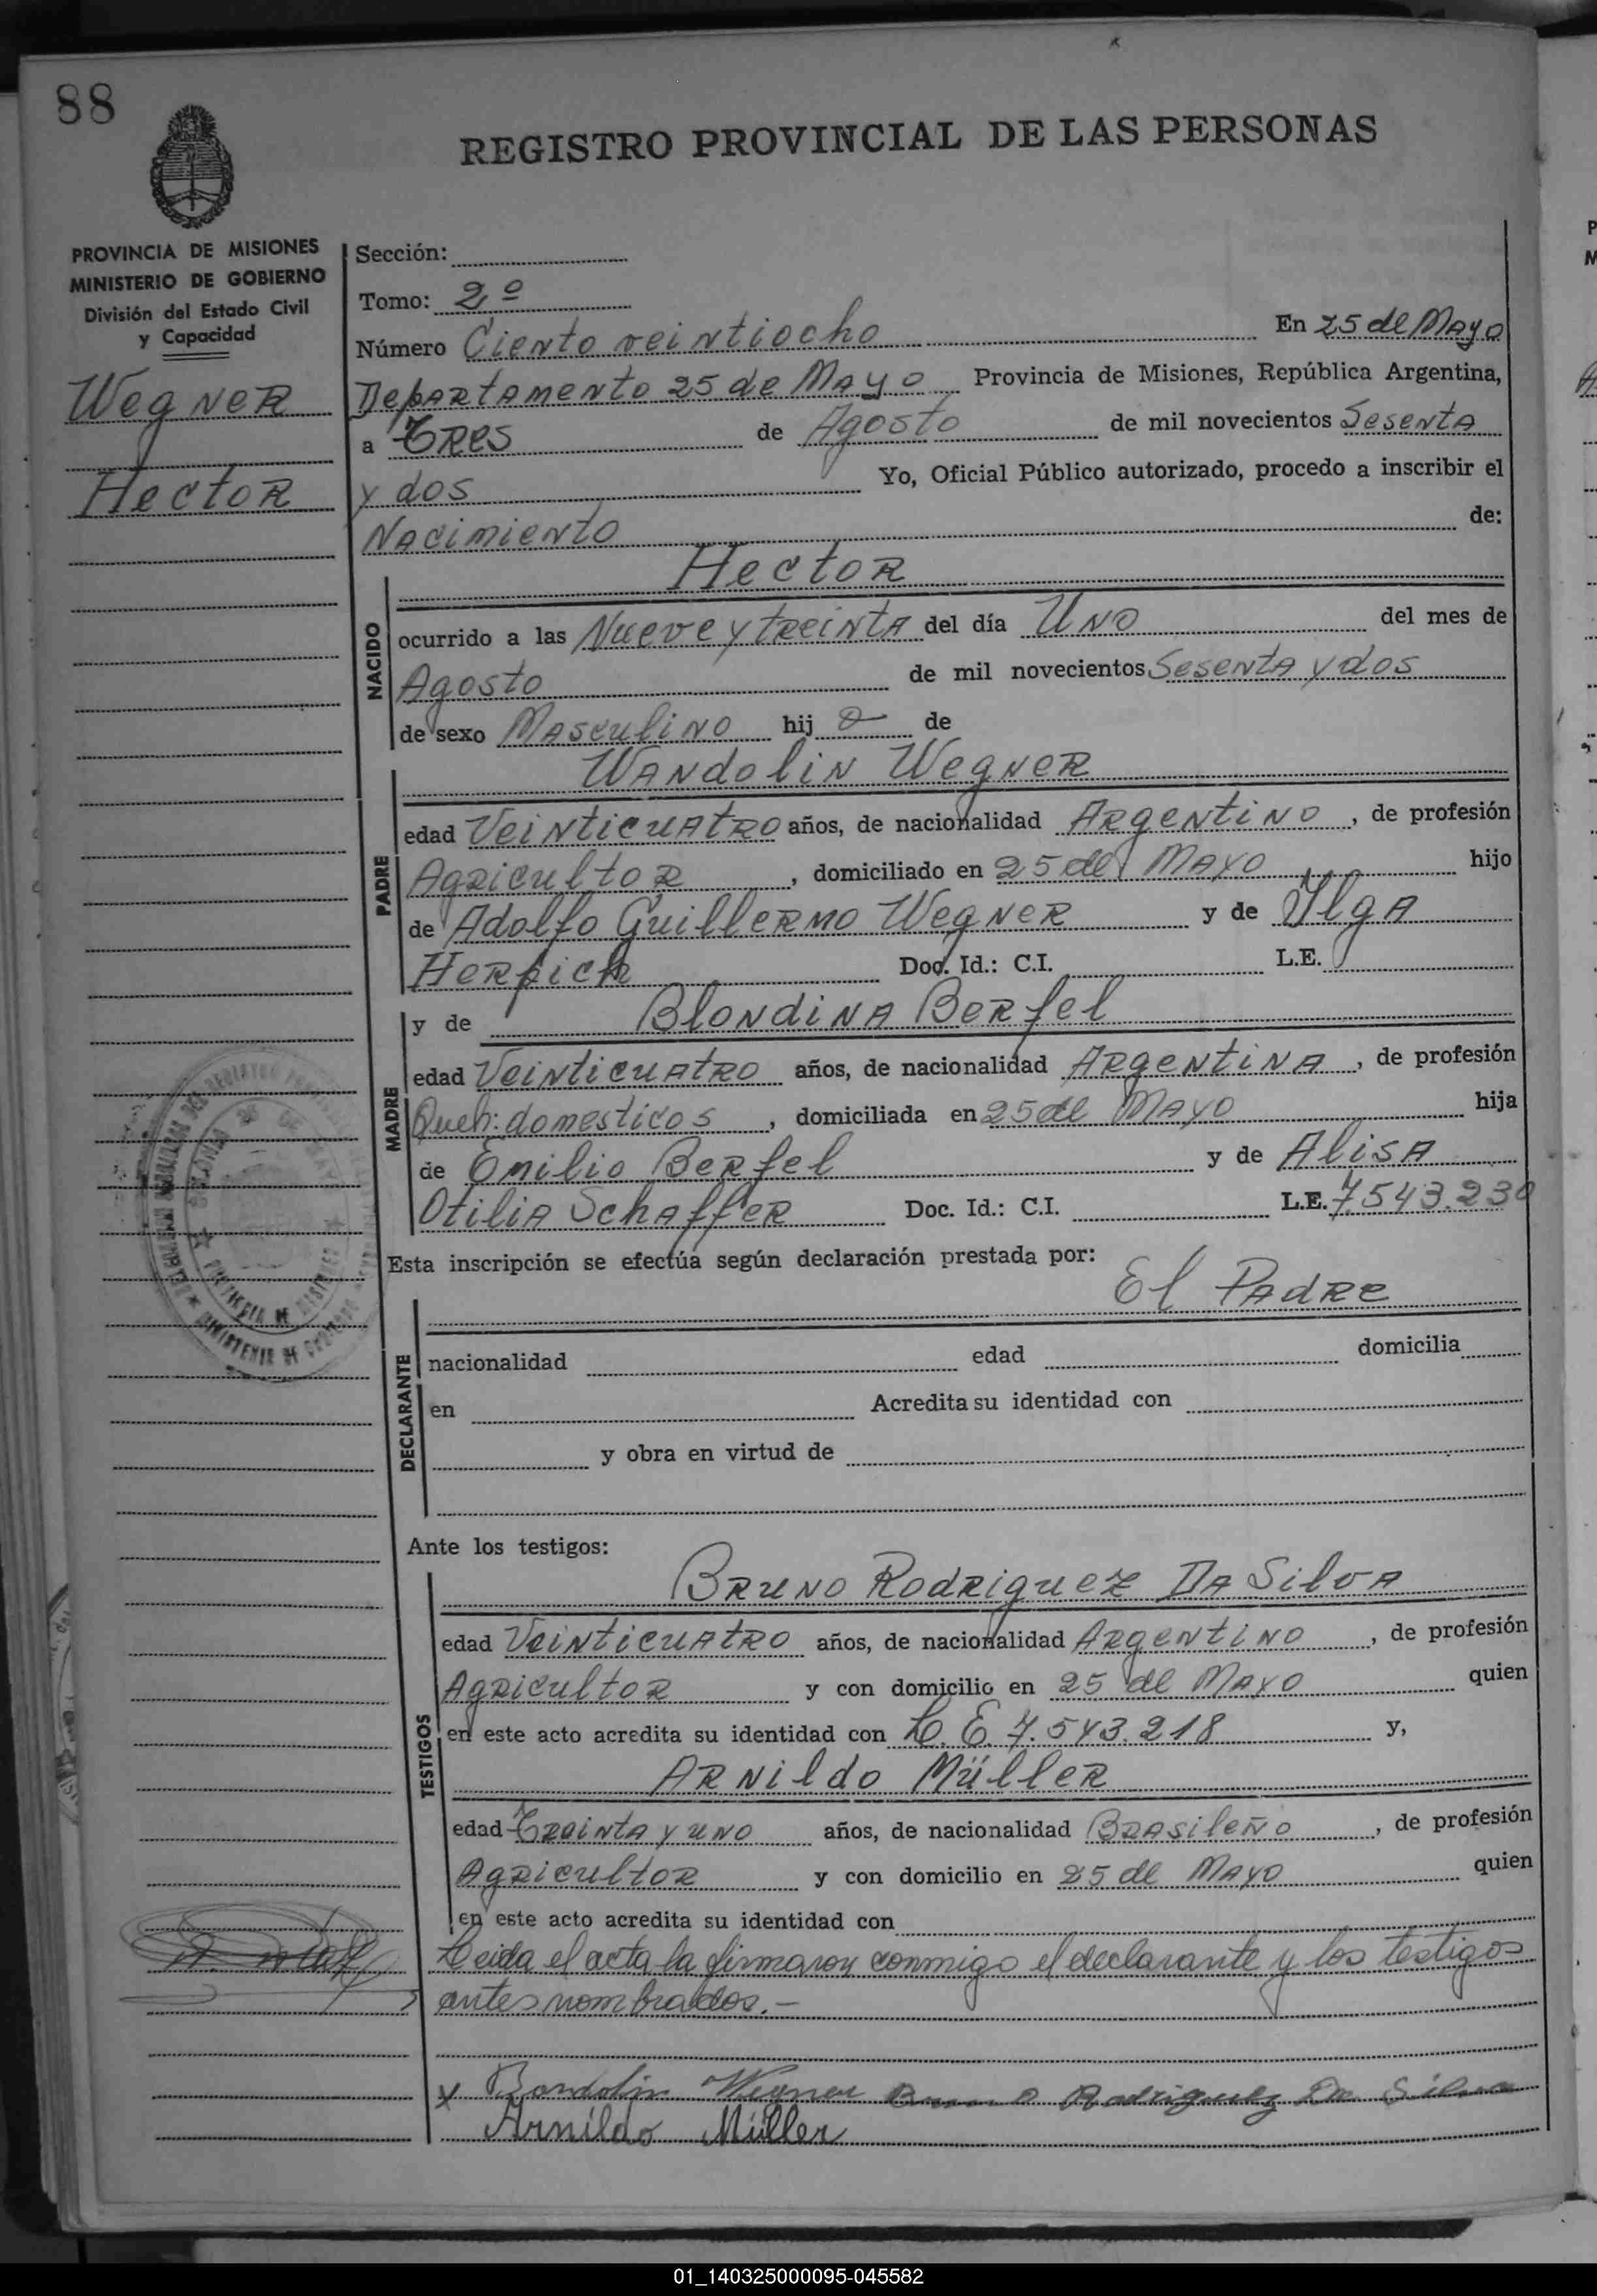 88
REGISTRO PROVINCIAL DE LAS PERSONAS
PROVINCIA DE MISIONES
MINISTERIO DE GOBIERNO
División del Estado Civil
y Capacidad
Wegner
Hector
Sección:
Tomo: 2º
Número Ciento veintiocho En 25 de Mayo
Departamento 25 de Mayo Provincia de Misiones, República Argentina,
a Tres de Agosto de mil novecientos Sesenta
y dos Yo, Oficial Público autorizado, procedo a inscribir el
Nacimiento de:
Hector
NACIDO
ocurrido a las Nueve y treinta del día Uno del mes de
Agosto de mil novecientos Sesenta y dos
de sexo Masculino hij o de
Wandolin Wegner
PADRE
edad Veinticuatro años, de nacionalidad Argentino, de profesión
Agricultor, domiciliado en 25 de Mayo hijo
de Adolfo Guillermo Wegner y de Ilga
Herpich Doc. Id.: C.I. L.E.
y de Blondina Berfel
MADRE
edad Veinticuatro años, de nacionalidad Argentina, de profesión
Queh: domesticos, domiciliada en 25 de Mayo hija
de Emilio Berfel y de Alisa
Otilia Schaffer Doc. Id.: C.I. L.E. 7.543.230
Esta inscripción se efectúa según declaración prestada por:
El Padre
DECLARANTE
nacionalidad edad domicilia
en Acredita su identidad con
y obra en virtud de
Ante los testigos:
Bruno Rodriguez Da Silva
TESTIGOS
edad Veinticuatro años, de nacionalidad Argentino, de profesión
Agricultor y con domicilio en 25 de Mayo quien
en este acto acredita su identidad con L. E. 7.543.218 y,
Arnildo Müller
edad Treinta y uno años, de nacionalidad Brasileño, de profesión
Agricultor y con domicilio en 25 de Mayo quien
en este acto acredita su identidad con
Leida el acta la firmaron conmigo el declarante y los testigos
antes nombrados.-
x Bandolin Wegner Bruno Rodriguez Da Silva
Arnildo Müller
01_140325000095-045582